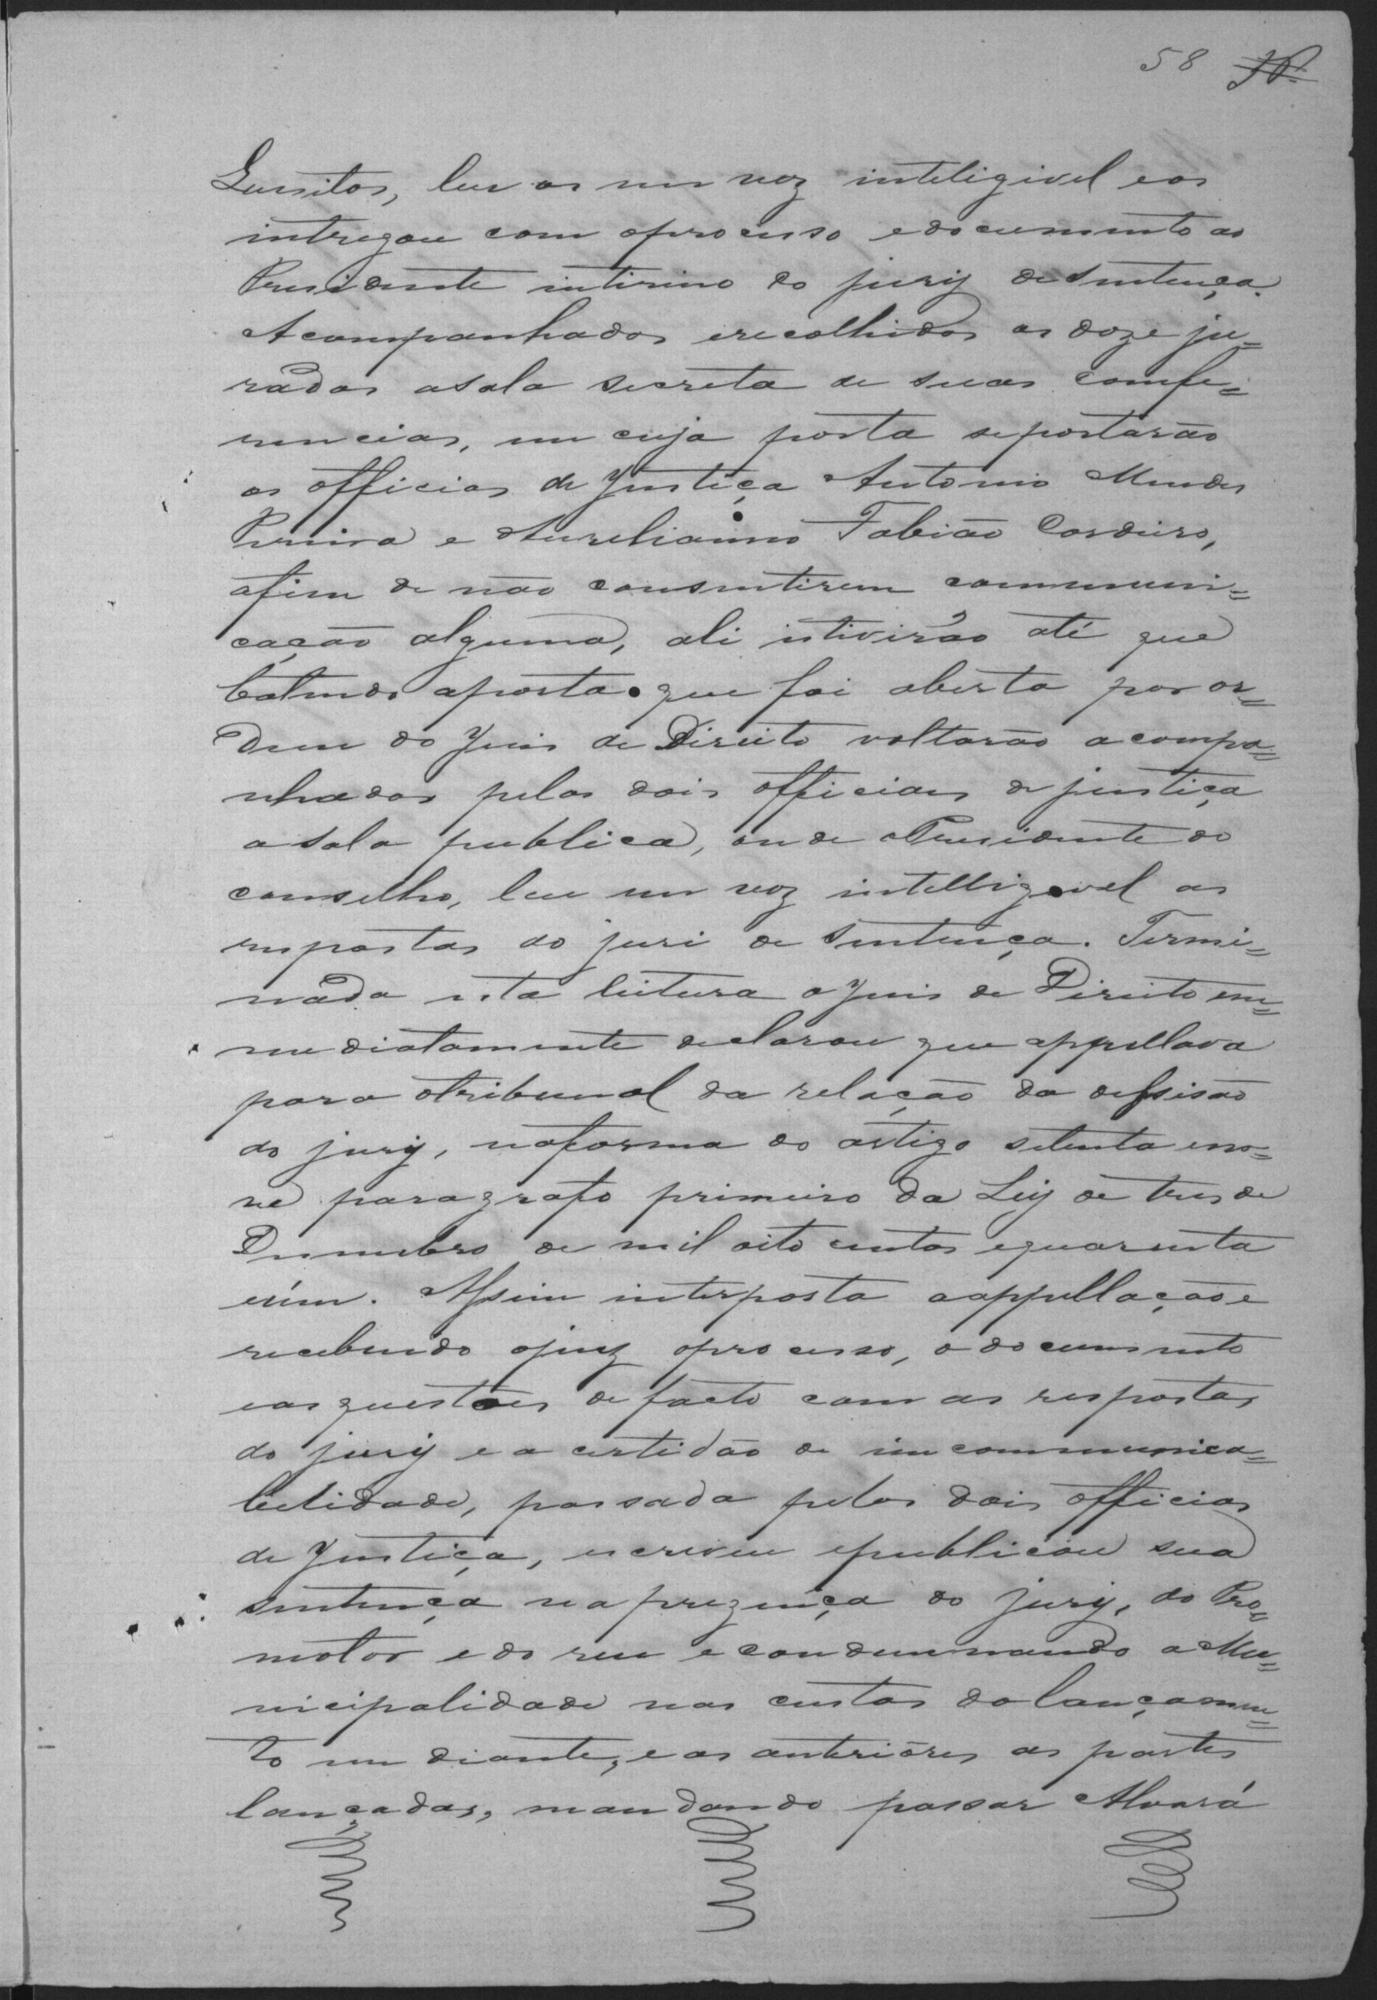 58
Quesitos, leu os em voz inteligivel e os
intregou com oprocesso edocumento ao
Presidente intirino do jury de sentença.
Acompanhados erecolhidos os doze ju=
rados asala secreta de suas confe=
rencias, em cuja porta sepostarão
os officias de Justiça Antonio Mendes
Pereira e Aurelianno Fabião Cordeiro,
afim de não consentirem communi=
cação alguma, ali istiverão até que
batendo aporta que foi aberta por or=
dem do Juis de Direito voltarão acompa=
nhados pelos dois officiaes de justiça
a sala publica, onde oPresidente do
conselho, leu em voz intelligivel as
respostas do juri de Sentença. Termi=
nada esta leitura o Juis de Direito em=
mediatamente declarou que appellava
para otribunal da relação da dessisão
do jury, naforma do artigo setenta eno=
ve paragrafo primeiro da Ley de tres de
Desembro de mil oito centos equarenta
eúm. Assim interposta aappellação e
recebendo ojuiz oprocesso, o documento
eas questões de facto com as respostas
do jury e a certidão de incommunica=
belidade, passada pelos dois officias
de Justiça, escreveu epublicou sua
sentença na prezença do jury, do Pro=
motor e do reu e condemnando a Mu=
nicipalidade nas custas do lançamen=
to em diante, e as anteriores as partes
lançadas, mandando passar Alvará